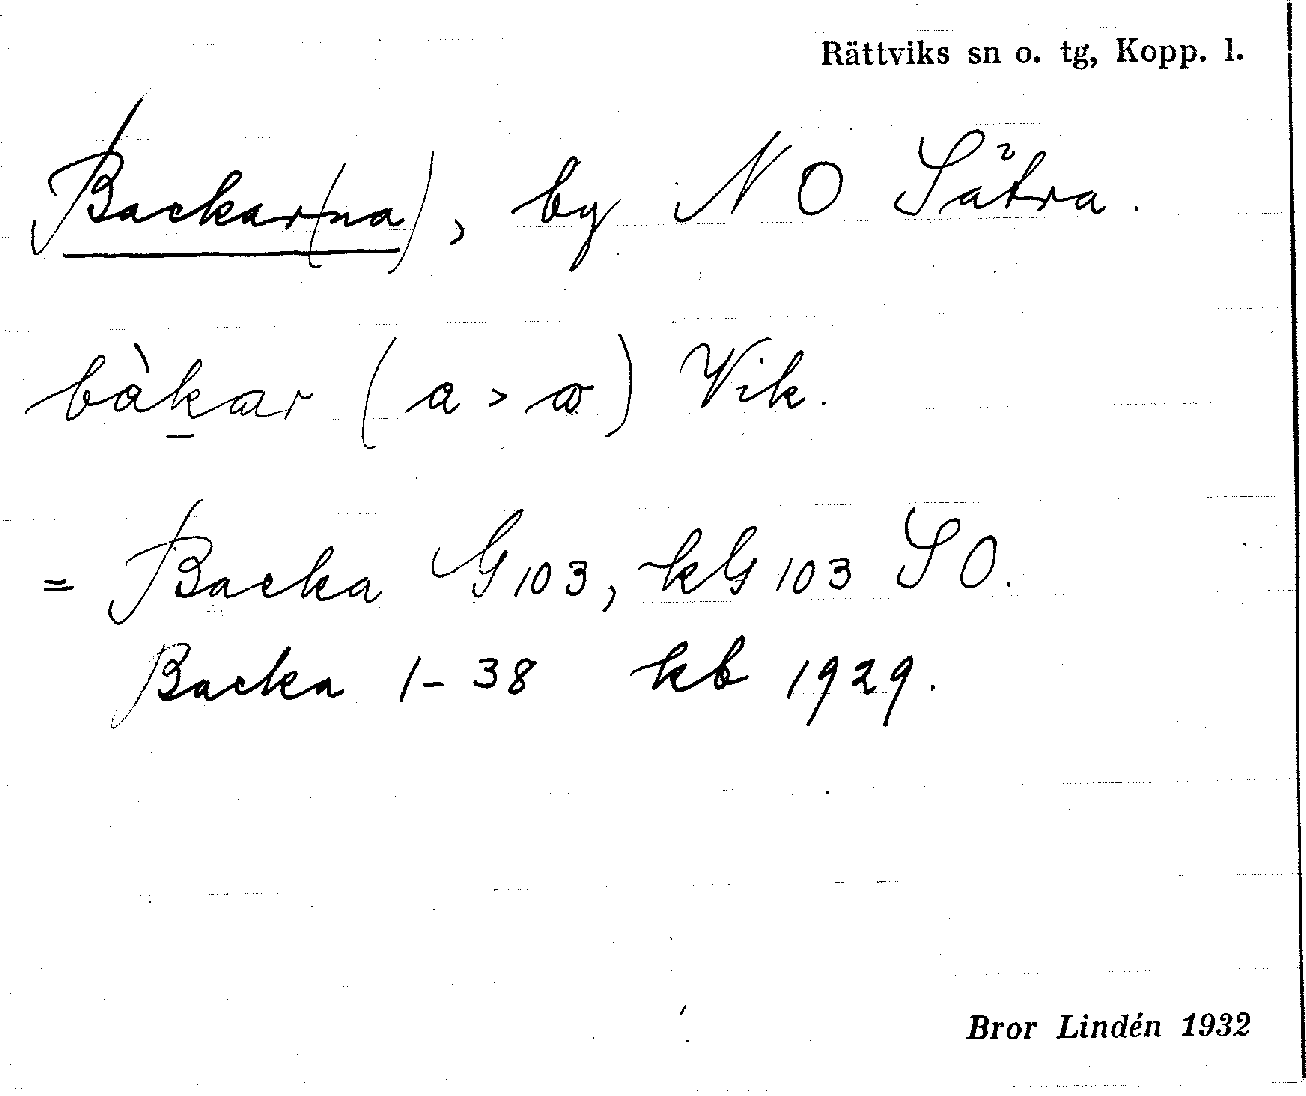 Rättviks sn o. tg, Kopp. l.
Backar(na), by N O Sätra.
bàk̲ar (a > α) Vik.
= Backa G 103, kG 103 S O.
Backa 1-38 kb 1929.
Bror Lindén 1932